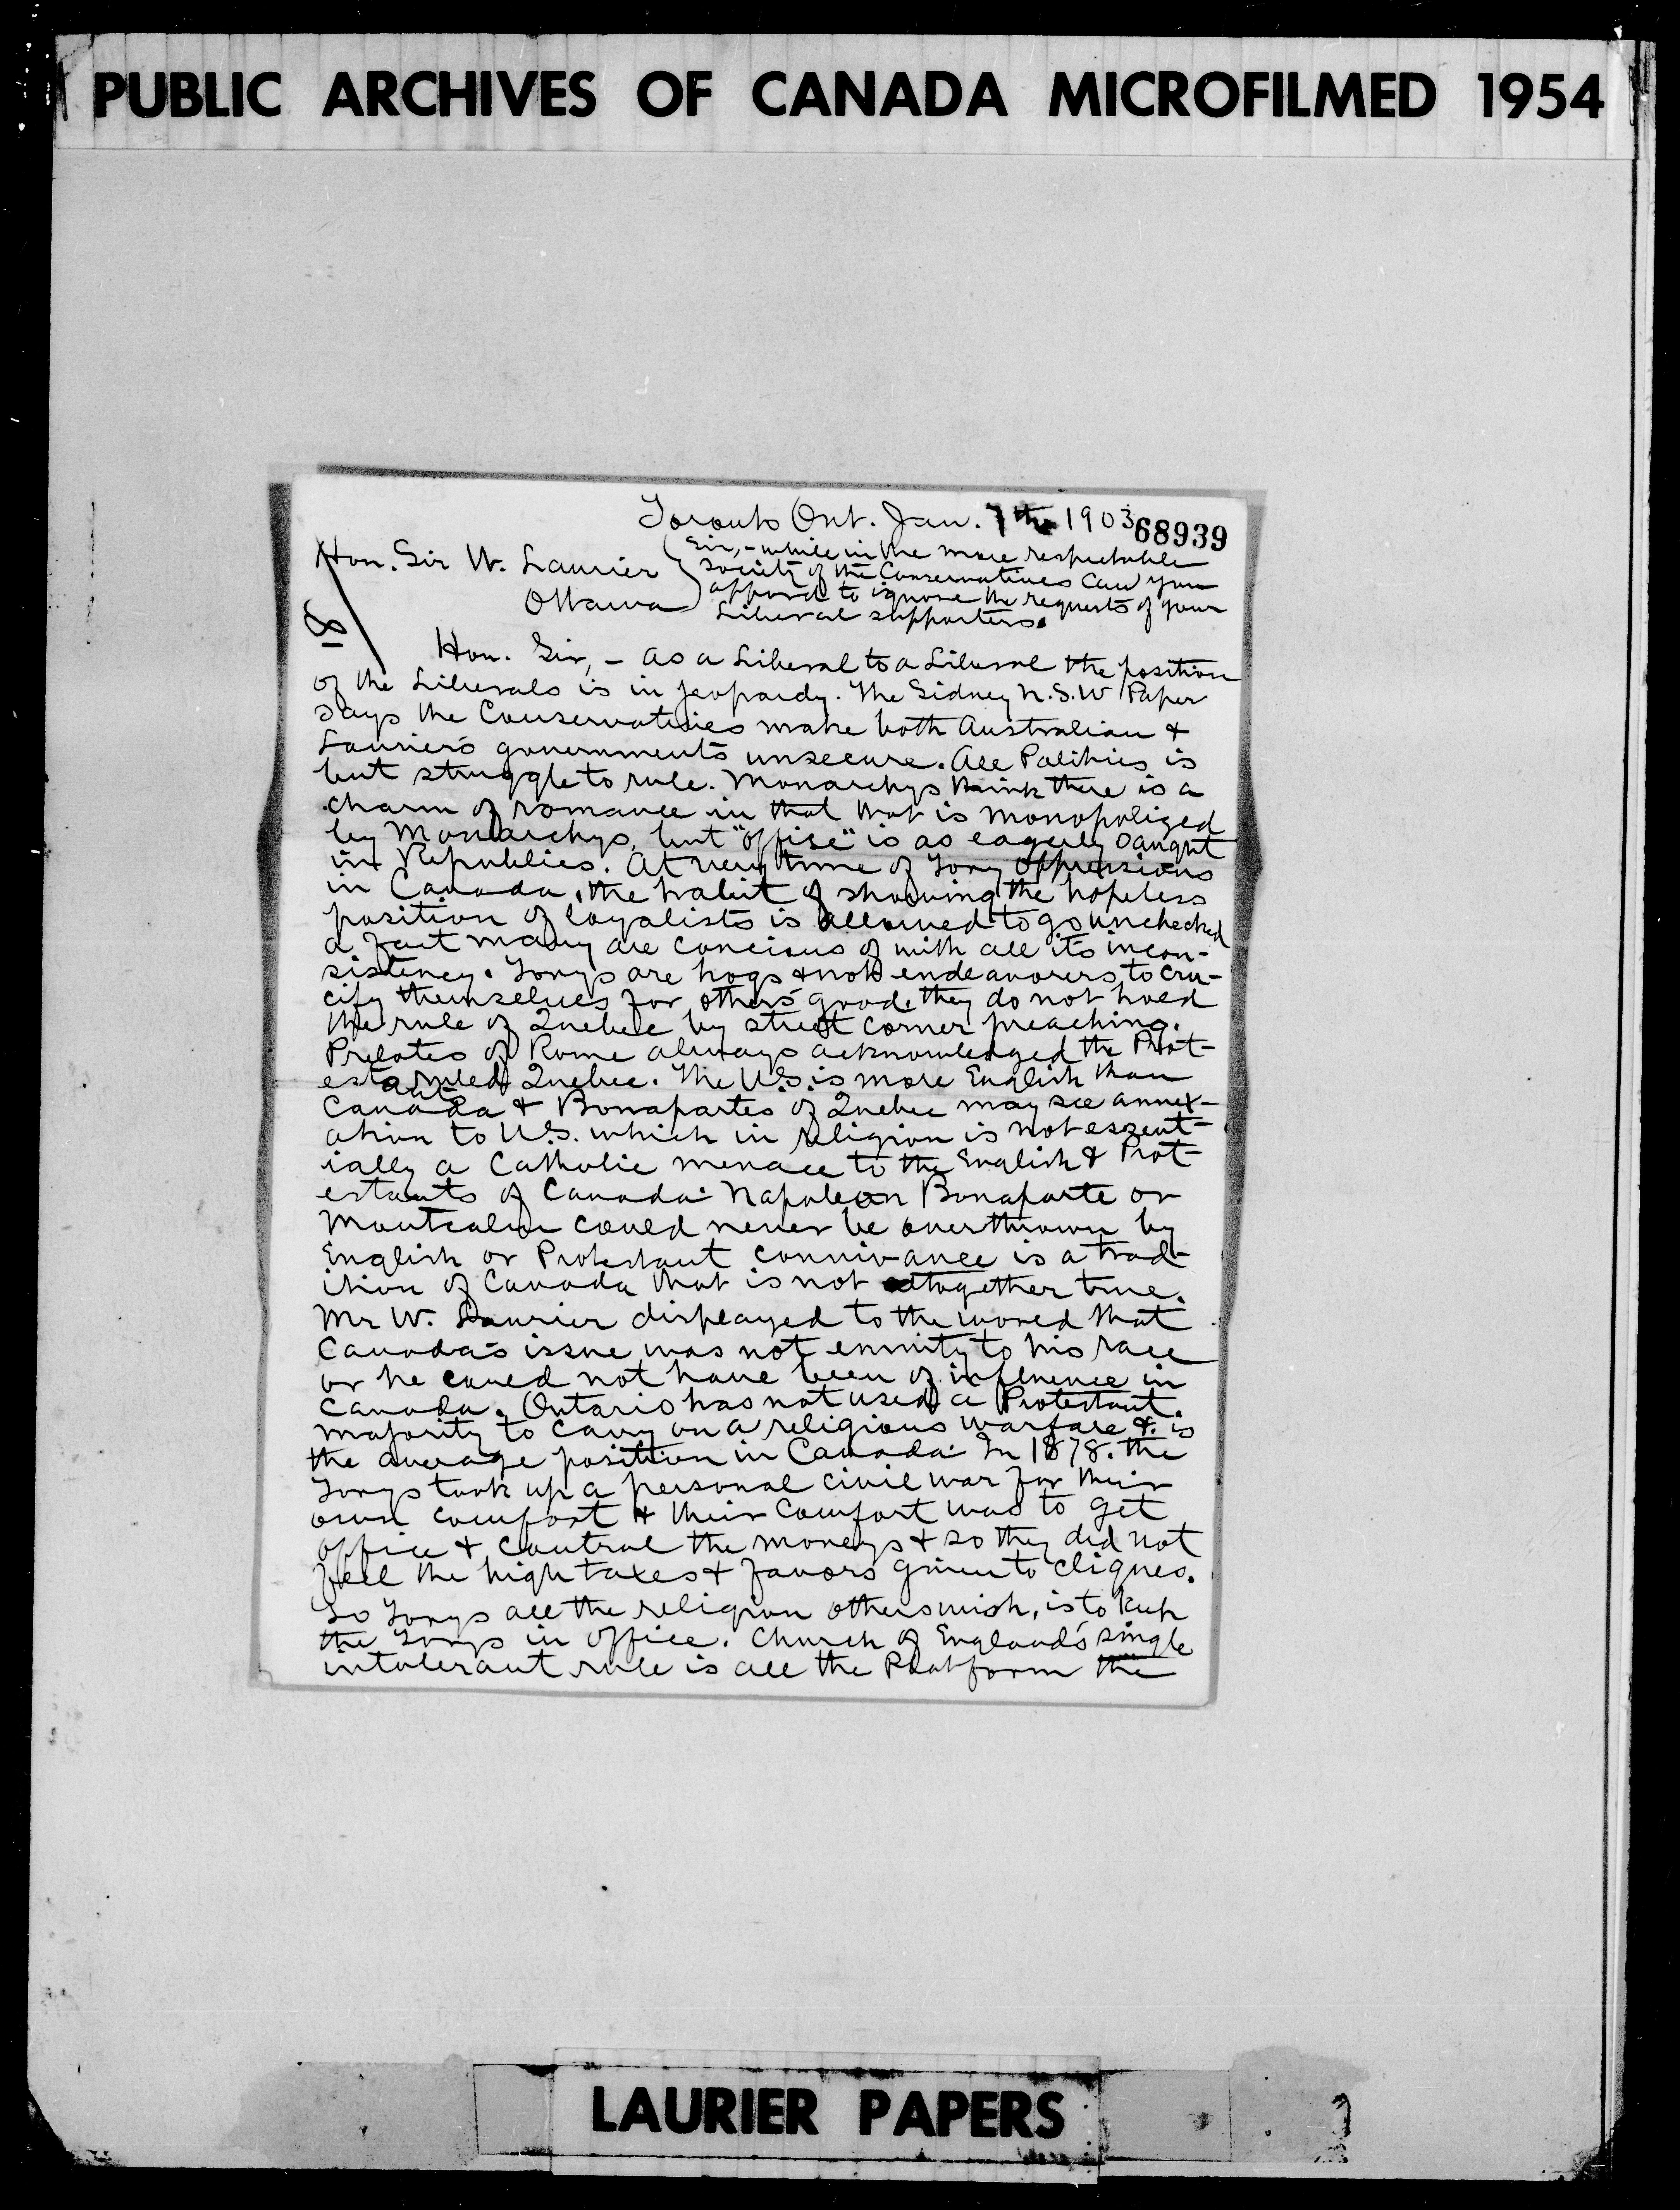 PUBLIC ARCHIVES OF CANADA MICROFILMED 1954
Toronto Ont. Jan. 7th 1903
68939
Hon. Sir W. Laurier
Ottawa
Sir, - while in the more respectable
society of the Conservatives can you
apporde to ignore the requests of your
Liberal supporters.
Hon. Sir, - as a Liberal to a Liberal the position
of the Liberals is in jeopardy. The Sidney N.S.W Paper
says the Conservatives make both Australian &
Laurier's governments unsecure. All Politics is
but struggle to rule. Monarchys think there is a
charm of romance in that that is monopolized
by Monarchys, but "offise" is as eagerly saught
in Republics. At very time of Tory oppressions
in Canada, the habit of showing the hopeless
position of loyalists is allowed to go unchecked
a fact many are concious of with all its incon-
sistency. Torys are hogs & not endeavorers to cru-
cify themselves for others' good, they do not hold
the rule of Quebec by street corner preaching.
Prelates of Rome always acknowledged the Prot-
estant ruled Quebec. The U.S. is more English than
Canada & Bonapartes of Quebec may see annex-
ation to U.S. which in religion is not essent-
ially a Catholic menace to the English & Prot-
estants of Canada. Napoleon Bonaparte or
Montcalm could never be overthrown by
English or Protestant connivance is a trad-
ition of Canada that is not altogether true.
Mr W. Laurier displayed to the world that
Canada's issue was not enmity to his race
or he could not have been of influence in
Canada. Ontario has not used a Protestant.
majority to carry on a religious warfare &. is
the average position in Canada. In 1878. the
Torys took up a personal civil war for their
own comfort & their comfort was to get
office & control the moneys & so they did not
feel the high taxes & favors given to cliques.
So Torys all the religion others wish, is to keep
the Torys in office. Church of England's single
intolerant rule is all the Platform the
LAURIER PAPERS